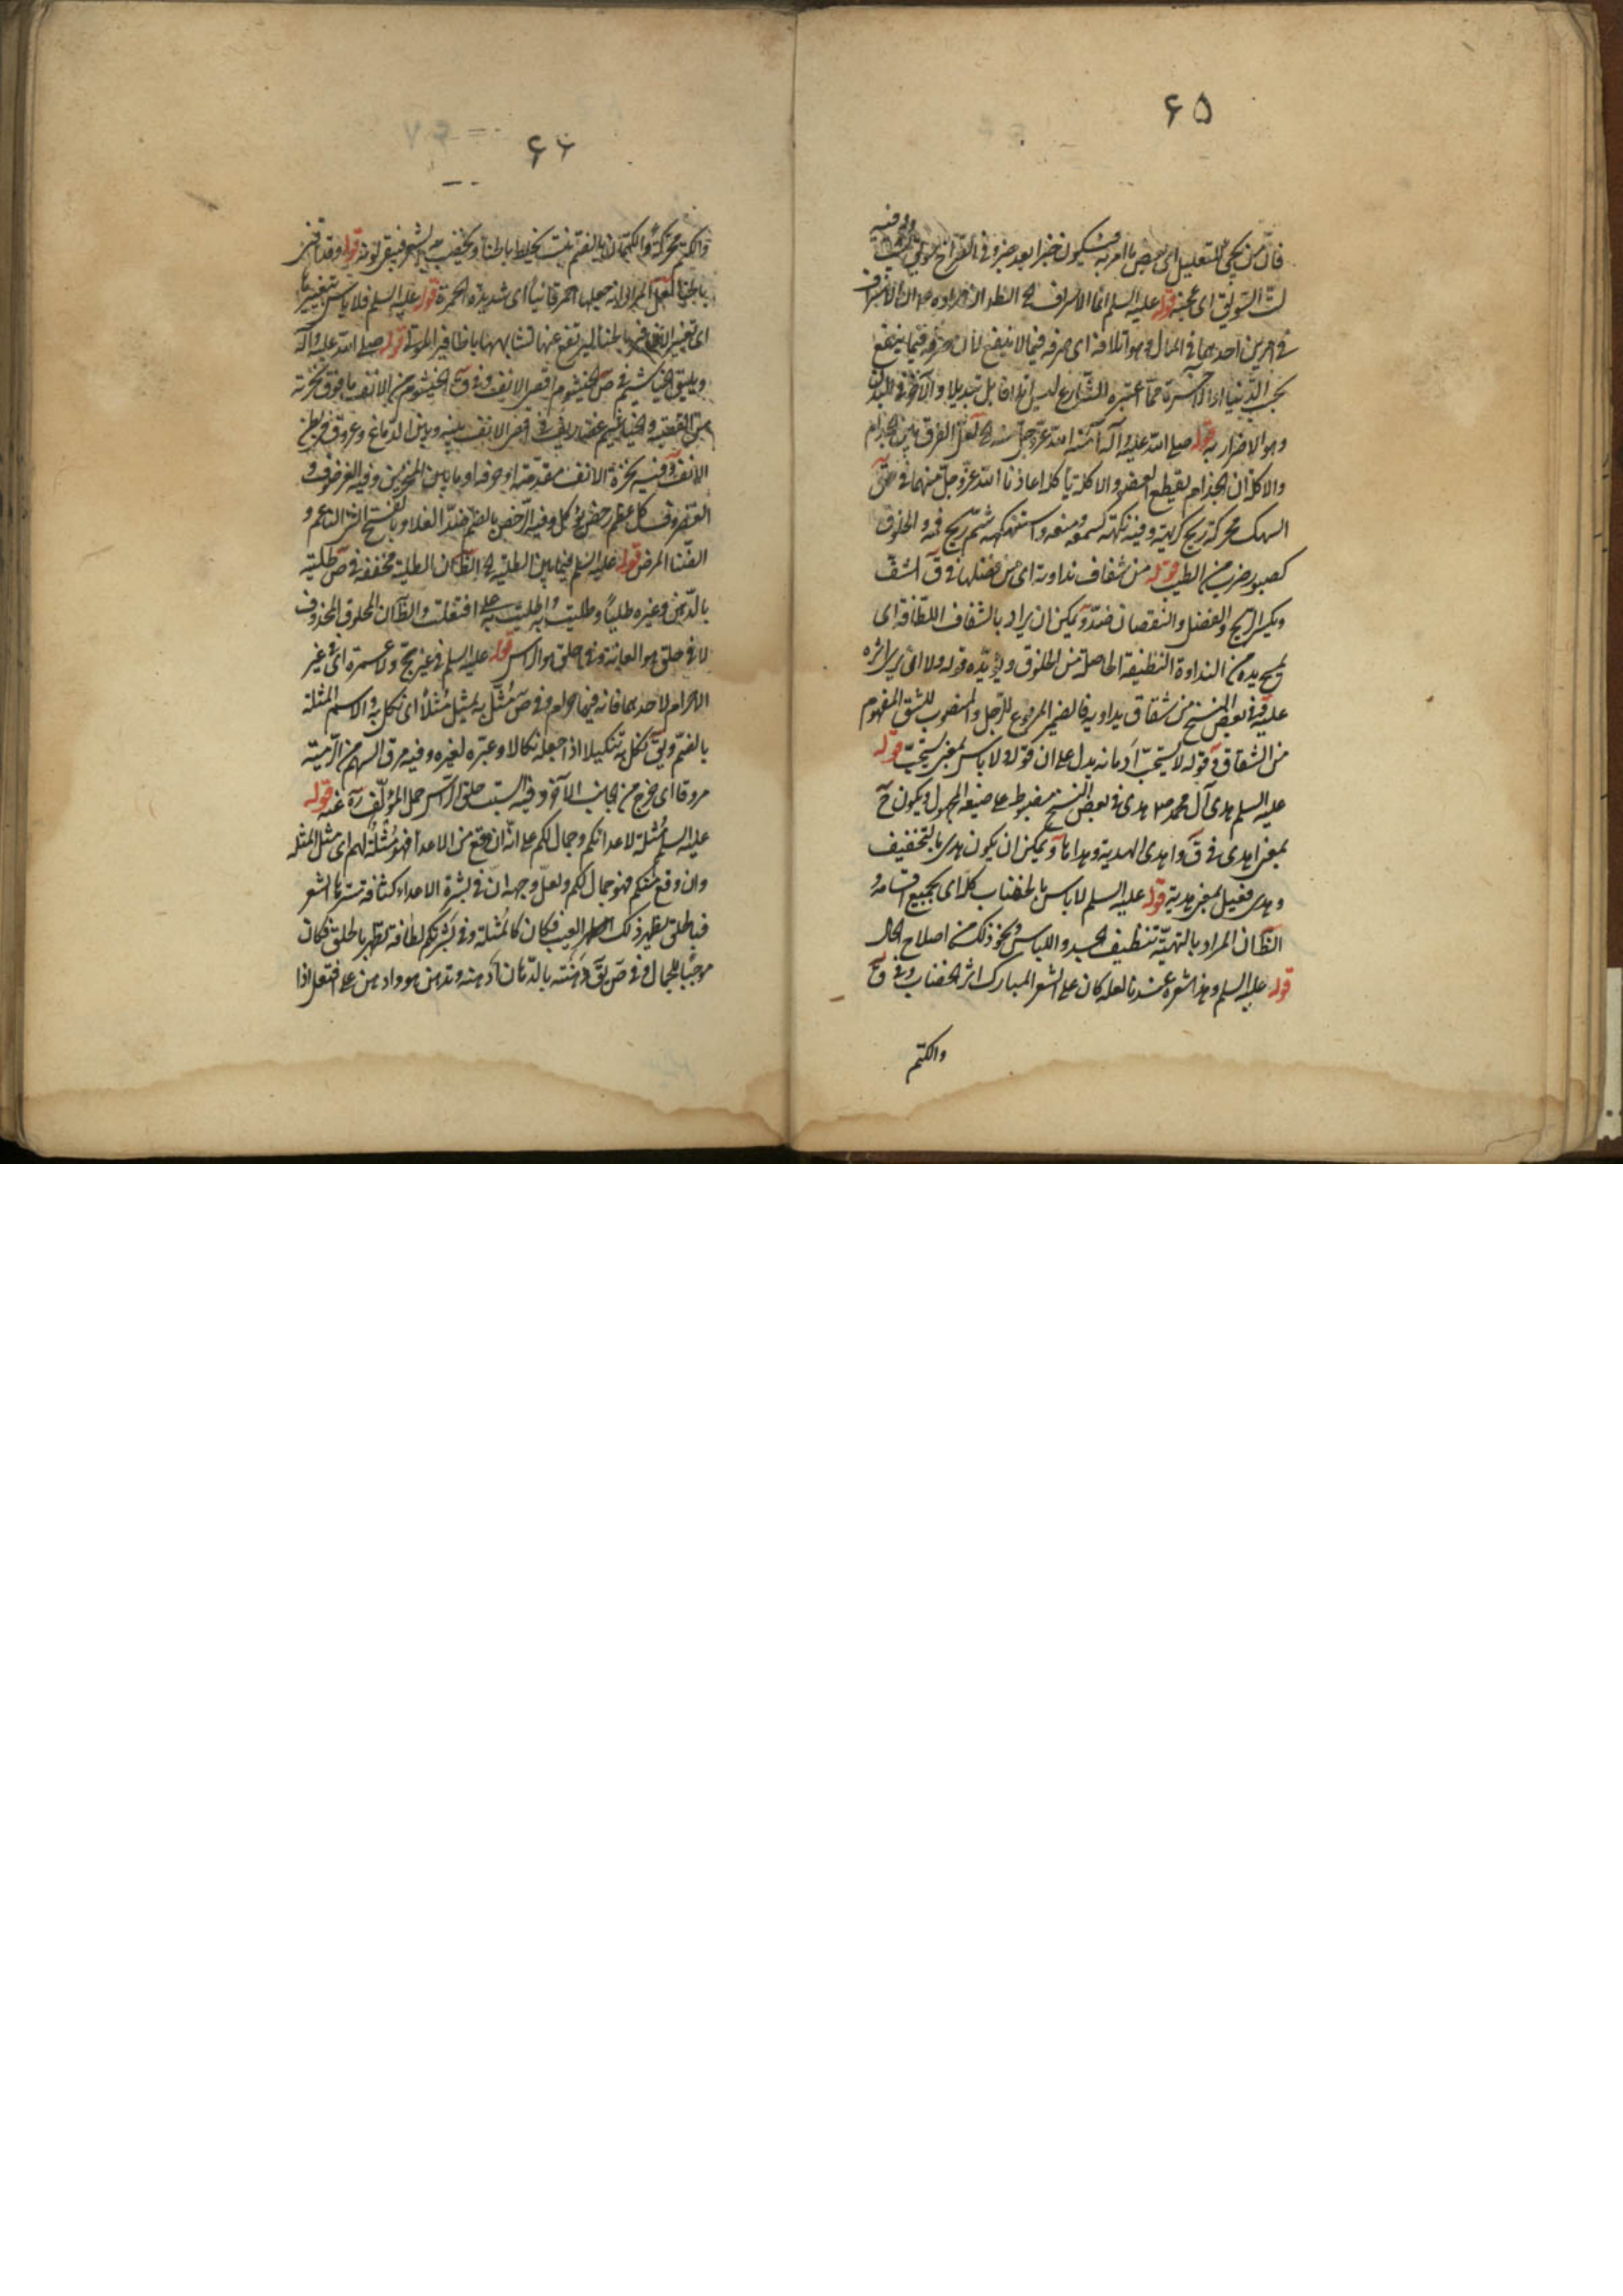 ۶۵
فان من يجئ للتعليل اى خصص ما امر به فيكون خبرا بعد خبر وفى
لتّ السويق اى عجنه قوله عليه السلم انما الاسراف الخ الظ ان مراده ان الاسراف
فى امرين احدهما فى المال وهو اتلافه اى صرفه فيما لا ينفع لأن صرفه فيما ينفع
بحسب الدنيا او الآخرة مما اعتبره الشارع ليس اتلافا بل تبديلا والآخر فى البدن
وهو الاضرار به قوله صلى الله عليه وآله آمنه الله عز وجل منه الخ لعل الفرق بين الجذام
والاكلة ان الجذام تقطع العضو والاكلة تأكله اعاذنا الله عز وجل منهما فى ق
السهك محركة ريح كريهة وفيه نكهته كسمعه ومنعه واستنكهه شمّ ريح فمه والخلوق
كصبور ضرب من الطيب قوله من شقاق نداوية اى من فضلها فى ق الشفّ
ويكسر الربح والفضل والنقصان ضدّ ويمكن ان يراد بالشفاف اللطافة اى
يمسح يده من النداوة النظيفة الحاصلة من الخلوق ويؤيّده قوله ولا ارى اثره
عليه وفى بعض النسخ من شقاق يداويه فالضمير المرفوع للرجل والمنصوب للشق المفهوم
من الشقاق وقوله لا يستحبّ ادمانه يدل على ان قوله ولا باس بمعنى يستحبّ قوله
عليه السلم هدى آل محمد ص هدى فى بعض النسخ مضبوط على صيغة المجهول ويكون ح
بمعنى اهدى فى ق واهدى الهدية وهداها ويمكن ان يكون هدى بالتخفيف
وهدى فعيل بمعنى هدية قوله عليه السلم لا باس بالخضاب كله اى بجميع اقسامه و
الظ ان المراد بالتهيّة تنظيف الجسد واللباس ونحو ذلك من اصلاح الحال
قوله عليه السلم وهذا شعره عندنا لعله كان على الشعر المبارك اثر الخضاب وفى ق
والكتم
۶۶
والكتم محركة والكتمان بالضم نبت يخلط بالحناء ويخضب به الشعر فيبقى لونه قوله وقد اختضب
بالحناء لعل المراد انه جعلها احمر قانيا اى شديدة الحمرة قوله عليه السلم فلا باس بتغييرها
اى تغيير الاظافير بالحناء ليرتفع عنها تشابهها باظافير الموتى قوله صلى الله عليه وآله
ويليق الخياشيم فى ص الخيشوم اقصى الانف وفى ق الخيشوم من الانف ما فوق نخرته
من القصبة والخياشيم غضاريف فى اقصى الانف بينه وبين الدماغ وعروق فى بطن
الانف وفيه نخرة الانف مقدمته او خرقه او ما بين المنخرين وفيه الغرضوف و
الغضروف كل عظم رخص يؤكل وفيه الرخص بالضم ضد الغلاء وبالفتح الشئ الناعم و
الضنا المرض قوله عليه السلم فيما بين الطلية الخ الظ كان الطلية مخففة فى ص طليته
بالدهن وغيره طليا وطليت به واطليت به على افتعلت والظ ان الحلوق المحذوف
لا فى حلق هو العانة وفى حلق هو الراس قوله عليه السلم فى غير حج ولا عمرة اى فى غير
الاحرام لاحدهما فانه فيهما حرام وفى ص مثّل به يمثل مثلا اى نكل به والاسم المثلة
بالضم ويق نكل به تنكيلا اذا جعله نكالا وعبرة لغيره وفيه مرق السهم من الرمية
مروقا اى خرج من الجانب الآخر وفيه السبت حلق الراس حمل المؤلف ره عنه قوله
عليه السلم مثلة لاعدائكم وجمال لكم على انّه ان وقع من الاعداء فهو مثلة لهم اى مثل المثلة
وان وقع منكم فهو جمال لكم ولعل وجهه ان فى بشرة الاعداء كثافة تسترها الشعر
فبالحلق يظهر ذلك العيب فكان كالمثلة وفى بشرتكم لطافة تظهر بالحلق فكان
موجبا للجمال وفى ص يق دهنته بالدهان ادهنه وتدهن هو وادهن على افتعل اذا